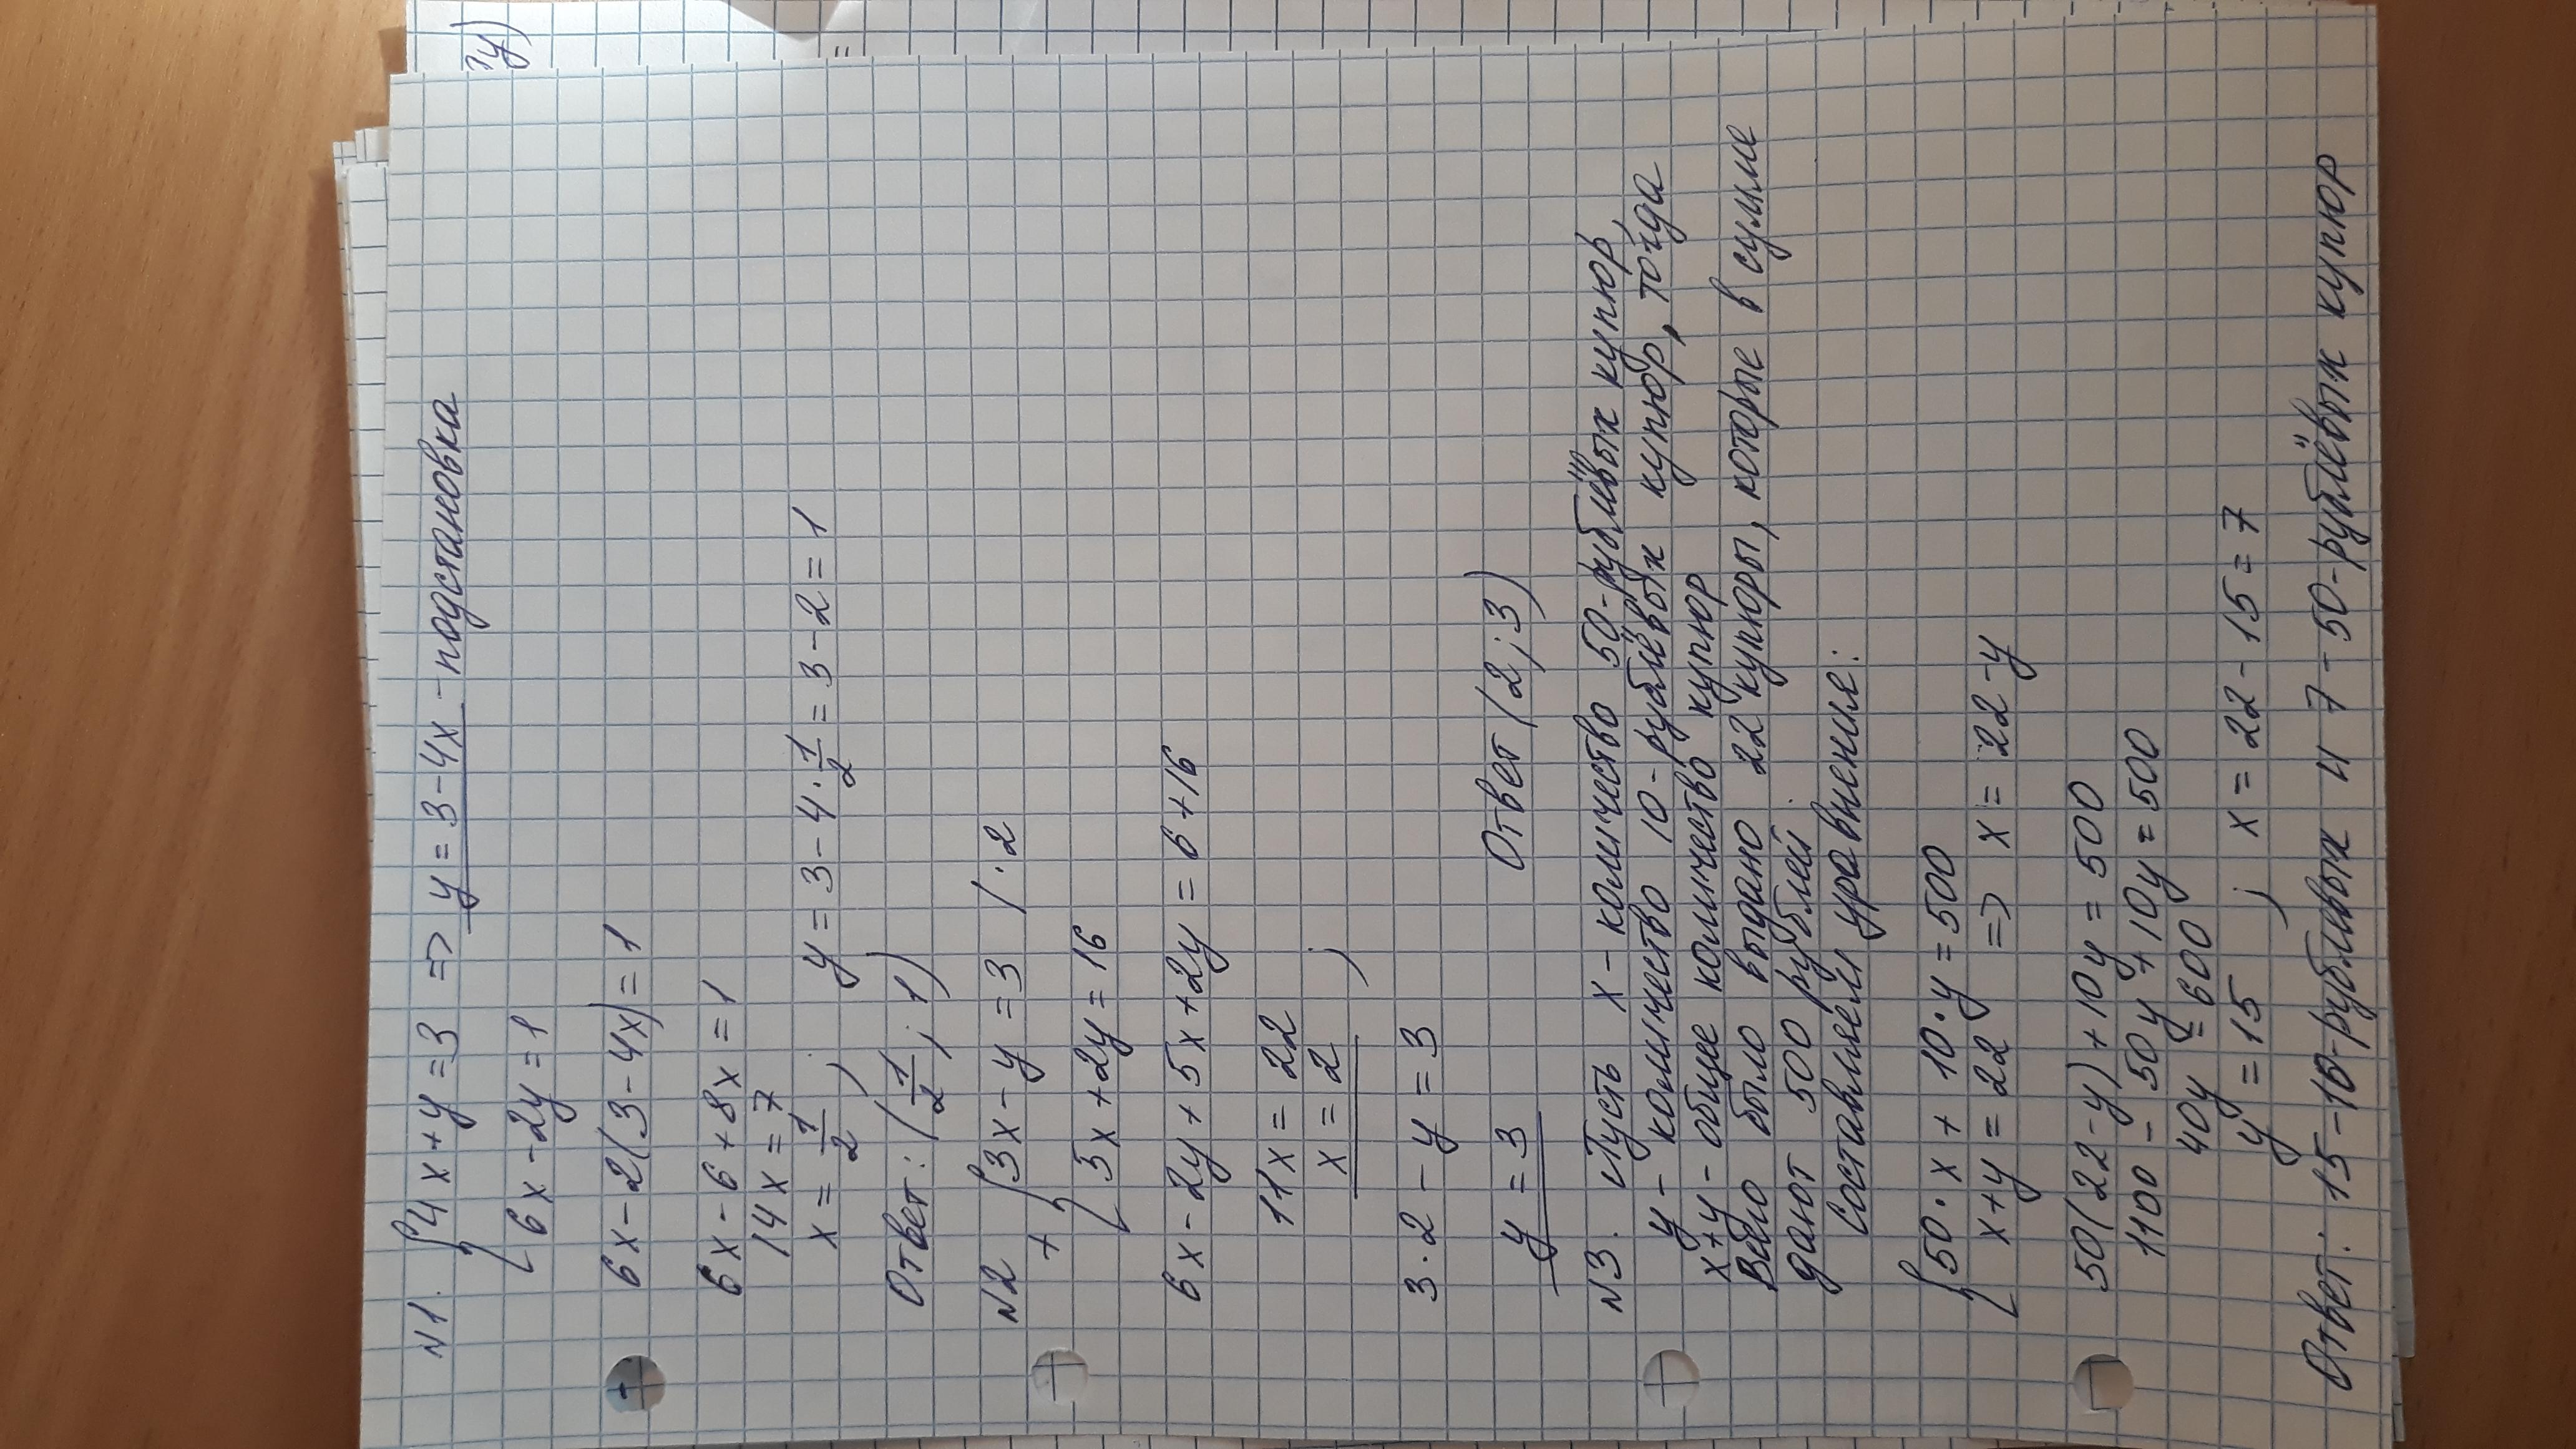 №1. {4x+y=3 => y=3-4x - подстановка
6x-2y=1
6x-2(3-4x)=1
6x-6+8x=1
14x=7
x=1/2; y=3-4·1/2=3-2=1
Ответ: (1/2; 1)
№2 + {3x-y=3 /·2
5x+2y=16
6x-2y+5x+2y=6+16
11x=22
x=2;
3·2-y=3
y=3 Ответ (2;3)
№3. Пусть x - количество 50-рублёвых купюр,
y - количество 10-рублёвых купюр, тогда
x+y - общее количество купюр
было выдано 22 купюры, которые в сумме
дают 500 рублей.
Составляем уравнения:
{50·x+10·y=500
x+y=22 => x=22-y
50(22-y)+10y=500
1100-50y+10y=500
40y=600
y=15; x=22-15=7
Ответ: 15-10-рублевых и 7-50-рублёвых купюр
?y)